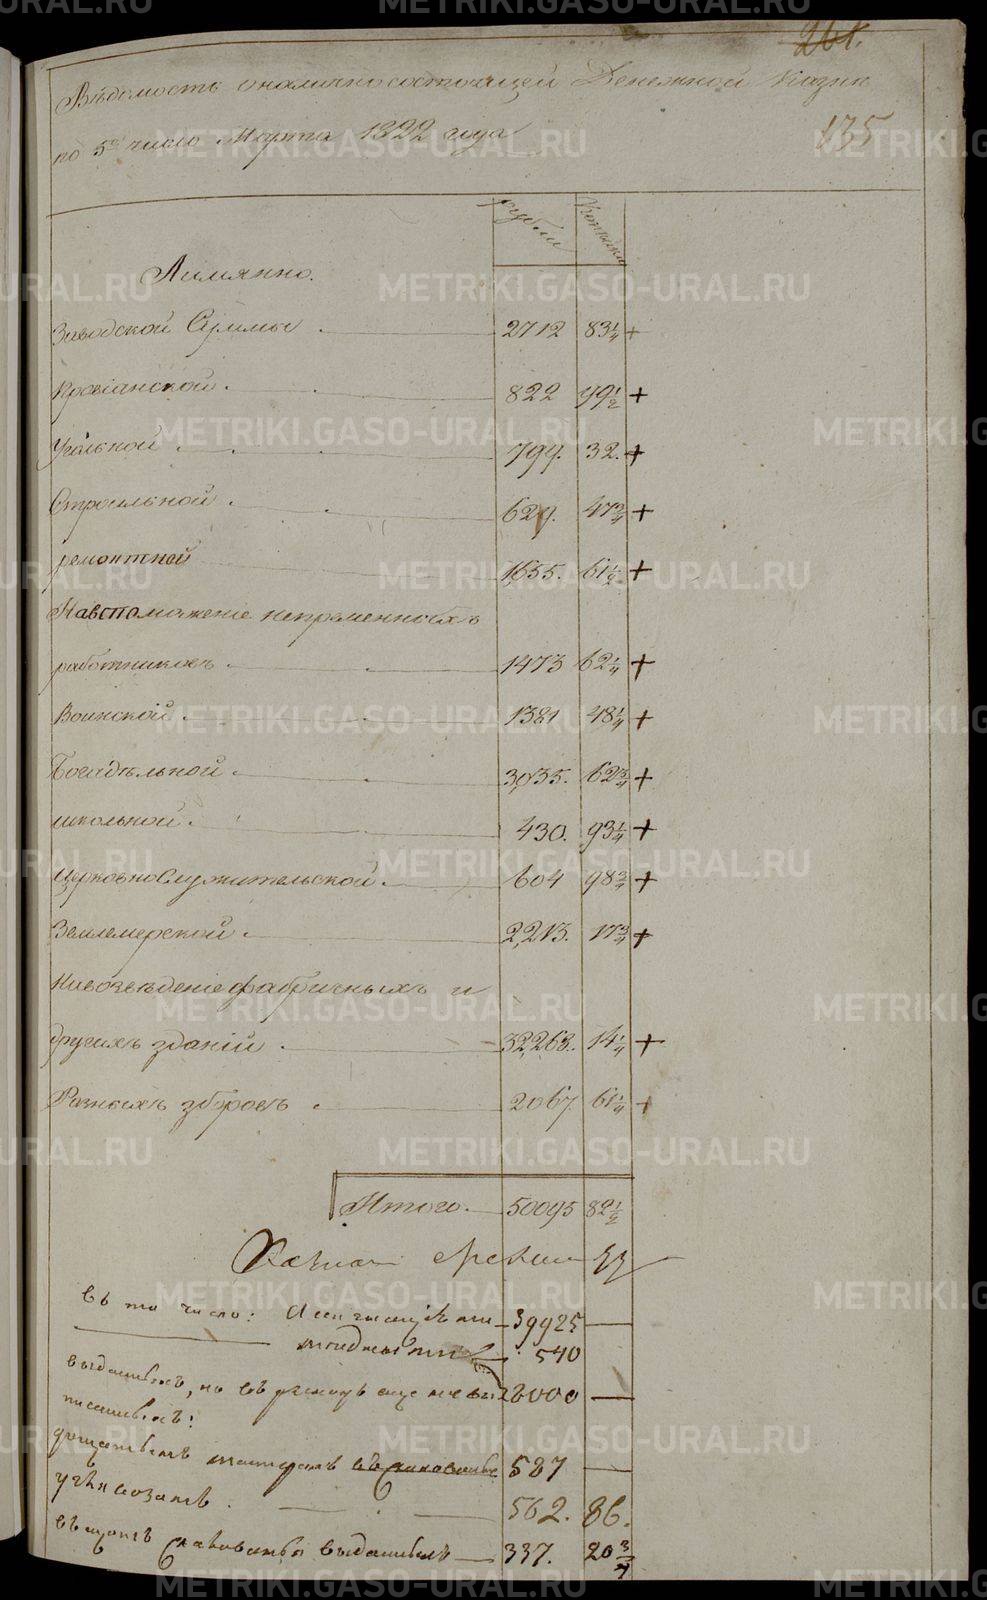 261.
Вѣдомость о налично состоящей Денежной Казнѣ
175
по 5е число Марта 1822 года
рубли копейки
Заводской Суммы 2712 83 1/4 +
Провіанской 822 99 1/2 +
Угольной 799. 32. +
Строельной 629. 47 3/4 +
ремонтной 1655. 61 1/2 +
На вспоможеніе непременныхъ
работниковъ 1473 62 1/4 +
Воинской 1321 48 1/4 +
Богадѣльной 3,035. 62 3/4 +
школьной 430. 93 1/4 +
Церковно Служительской 604 98 3/4 +
Землемерской 2,213. 17 3/4 +
На возведеніе фабричныхъ и
другихъ зданій 32,268. 14 1/4 +
Разныхъ зборовъ 2067 61 1/4 +
Итого 50095 82 1/2
въ то число: Ассигнаціями 39925
медными 540
выданныхъ, но въ расходъ еще не вы 8000
писанныхъ:
мастерамъ 587
562. 86.
въ щотъ выданныхъ 337. 20 3/4
METRIKI.GASO-URAL.RU